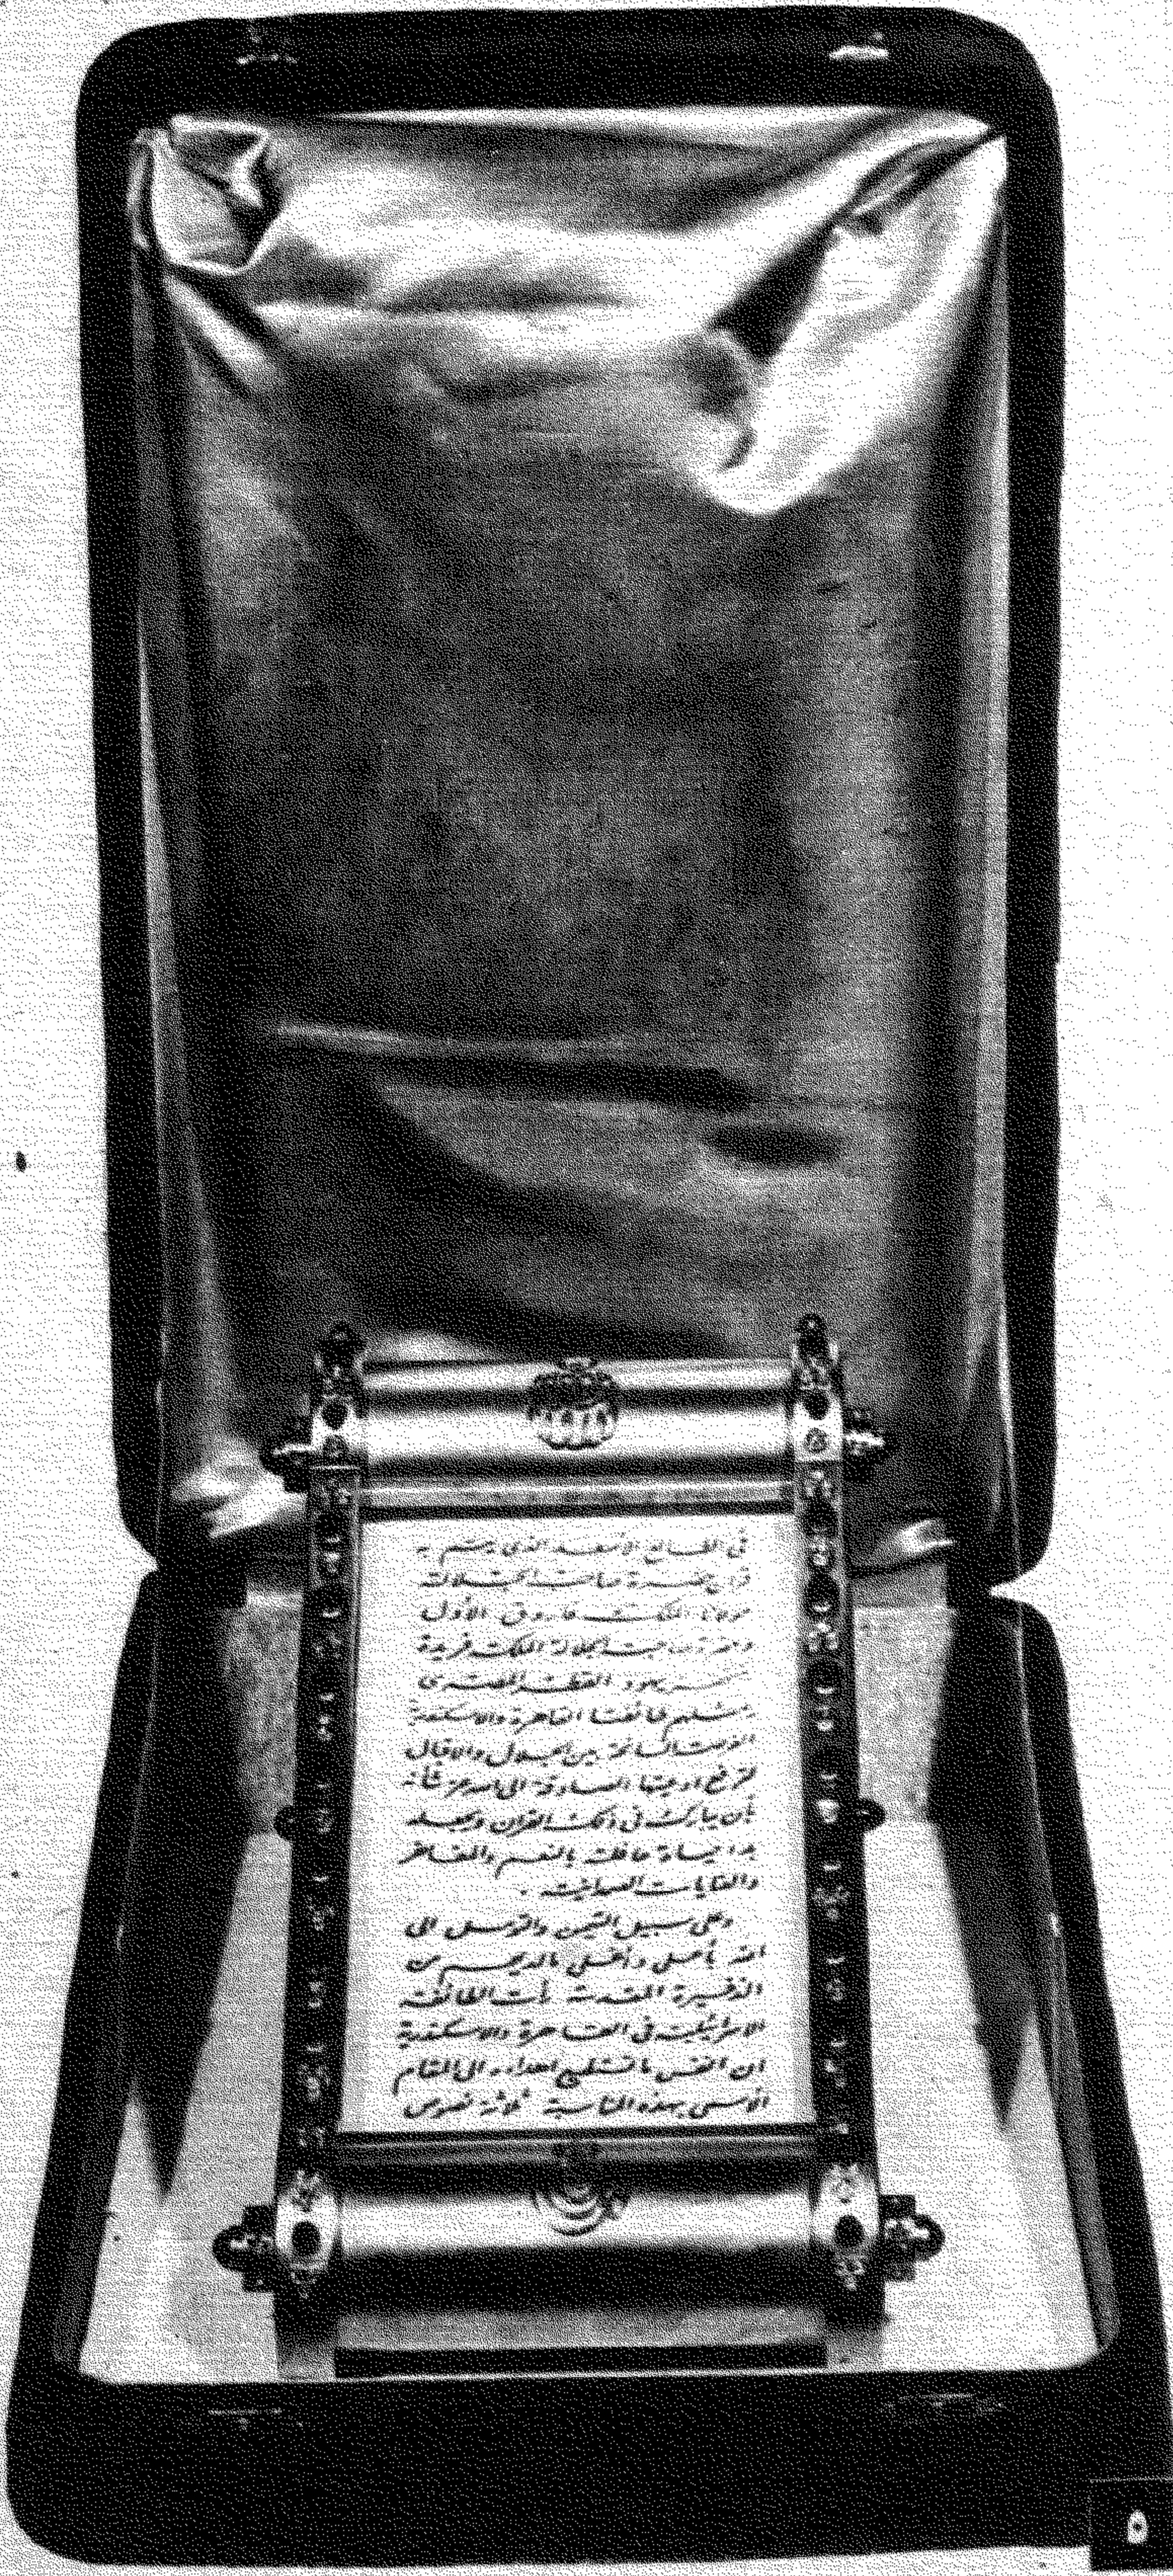 فى الطالع الأسعد الذى يتم به
قران حضرة صاحب الجلالة
مولانا الملك فاروق الأول
وحضرة صاحبة الجلالة الملكة فريدة
يهود القطر المصرى
طائفتا القاهرة والاسكندرية
بين الجلال والاقبال
لترفع ادعيتها الصادقة الى الله عز شأنه
بأن يبارك فى ذلك القران ويجعله
بدا حياة حافلة بالنعم والمفاخر
والعنايات الصمدانية .
وعلى سبيل التيمن والتوسل الى
الله بأجمل وأغلى مالديهم من
الذخيرة المقدسة رأت الطائفة
الاسرائيلية فى القاهرة والاسكندرية
ان انفس ما تستطيع اهداءه الى المقام
الأسمى بهذه المناسبة ثلاثة نصوص
٥